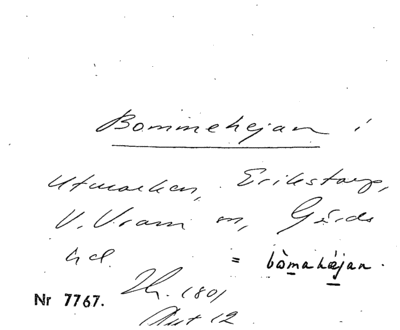 Bommehejan i
Utmarken, Erikstorp,
V. Vram m, Gärds
hd. = bòmahæjan.
Nr 7767. Th. 1801
Akt 12